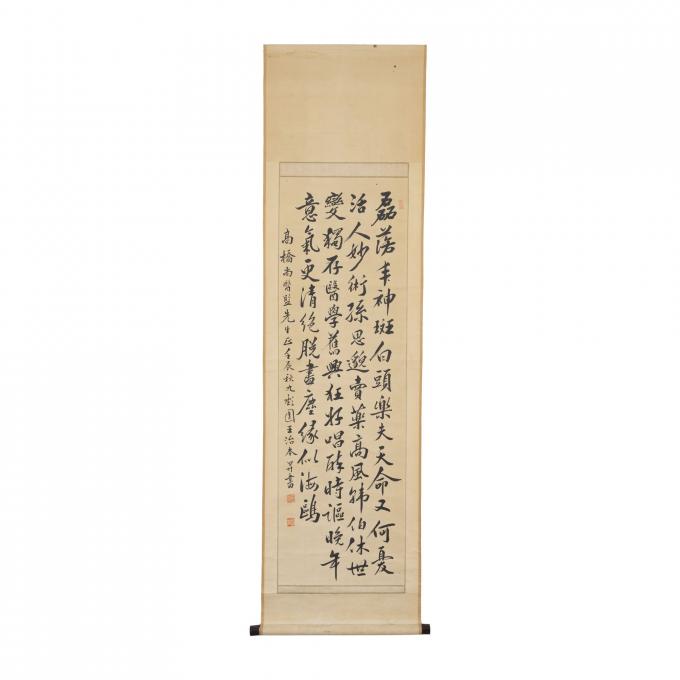 磊落丰神斑白頭樂夫天命又何憂
活人妙術孫思邈賣藥高風韓伯休世
變獨存醫學舊興狂好唱醉時謳晚年
意氣更清絶脱盡塵緣似海鷗
高橋尚醫監先生正壬辰秋九桼園王治本并書